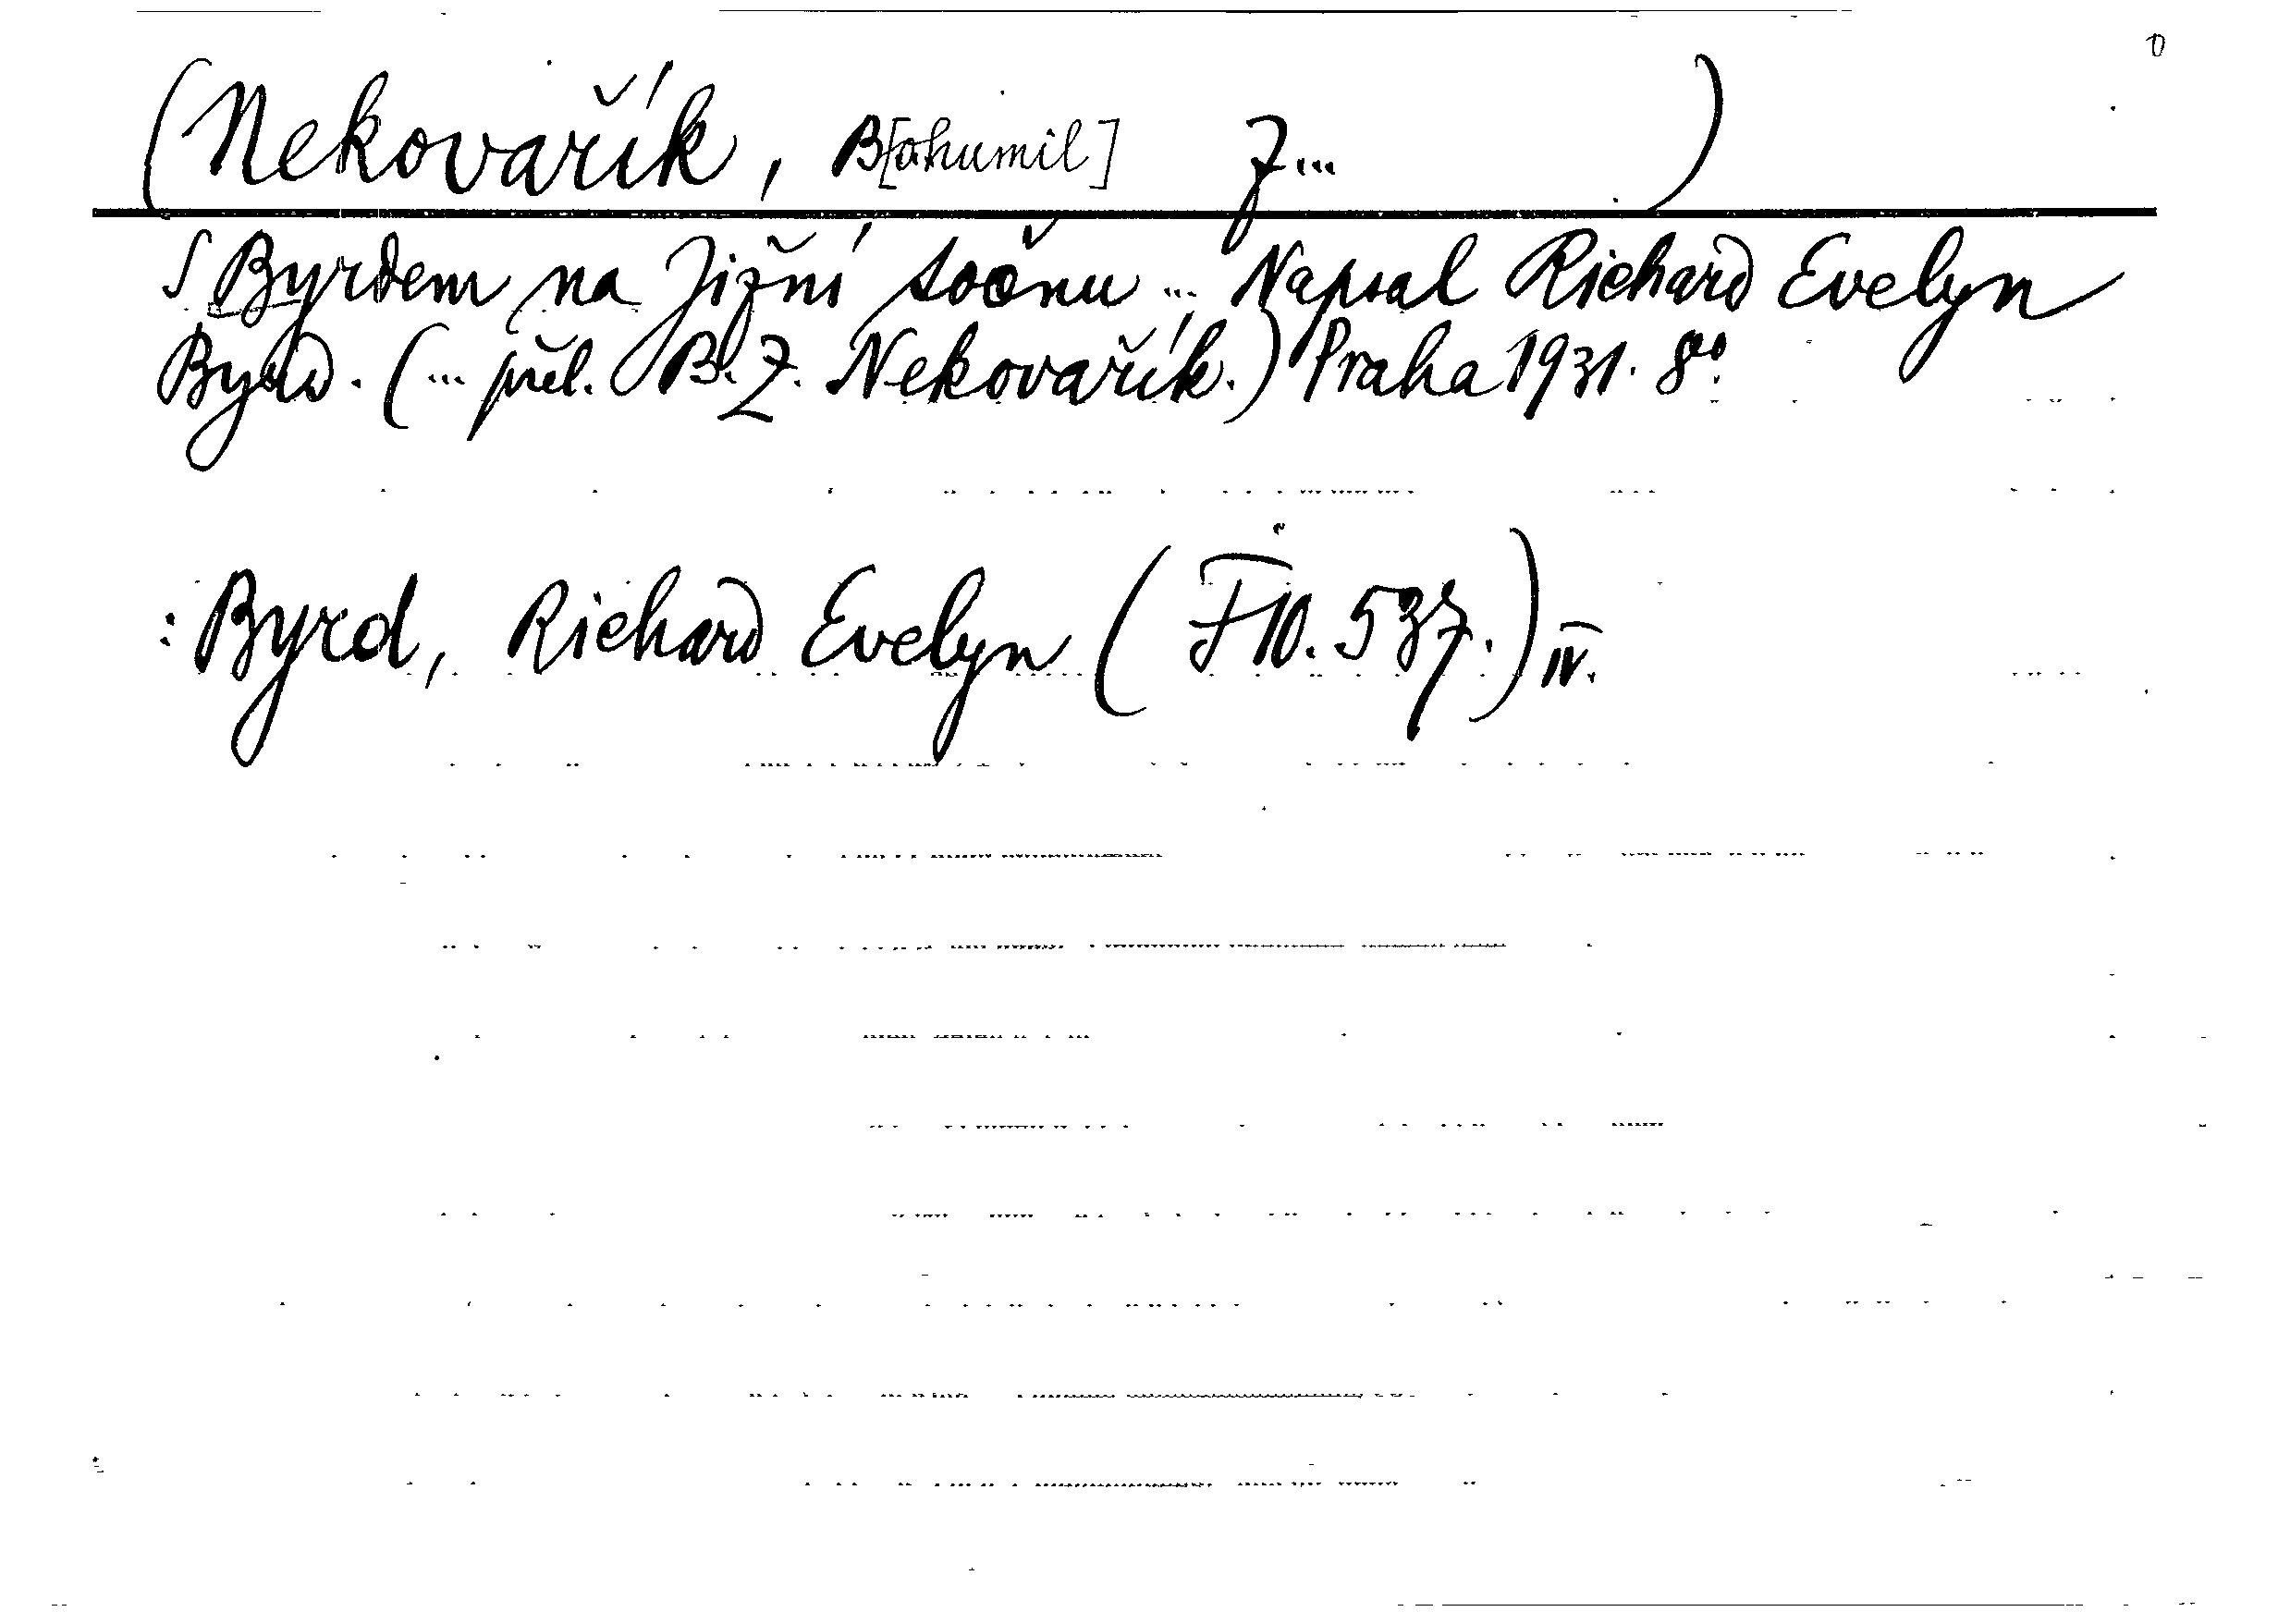 (Nekovařík, B[ohumil] Z... )
S Byrdem na Jižní točnu ... Napsal Richard Evelyn
Byrd. (... přel. B. Z. Nekovařík.) Praha 1931. 8°.
: Byrd, Richard Evelyn (F 10. 537.) IV.